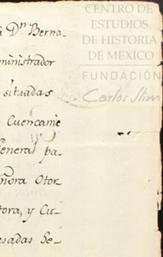 CENTRO DE
ESTUDIOS
DE HISTORIA
DE MEXICO
FUNDACIÓN
Carlos Slim
Dn. Berna-
ministrador
situadas
Cuencame
General pa-
ñora Otor
tora, y Cu-
esadas Se-